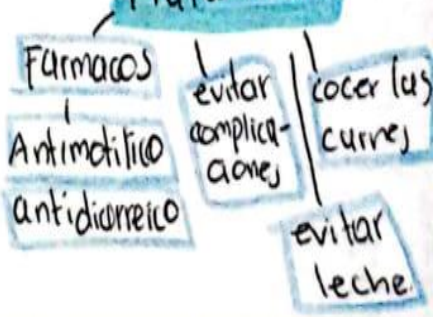 Farmacos
Antimotilico
antidiarreico
evitar
complica-
ciones
cocer las
carnes
evitar
leche.